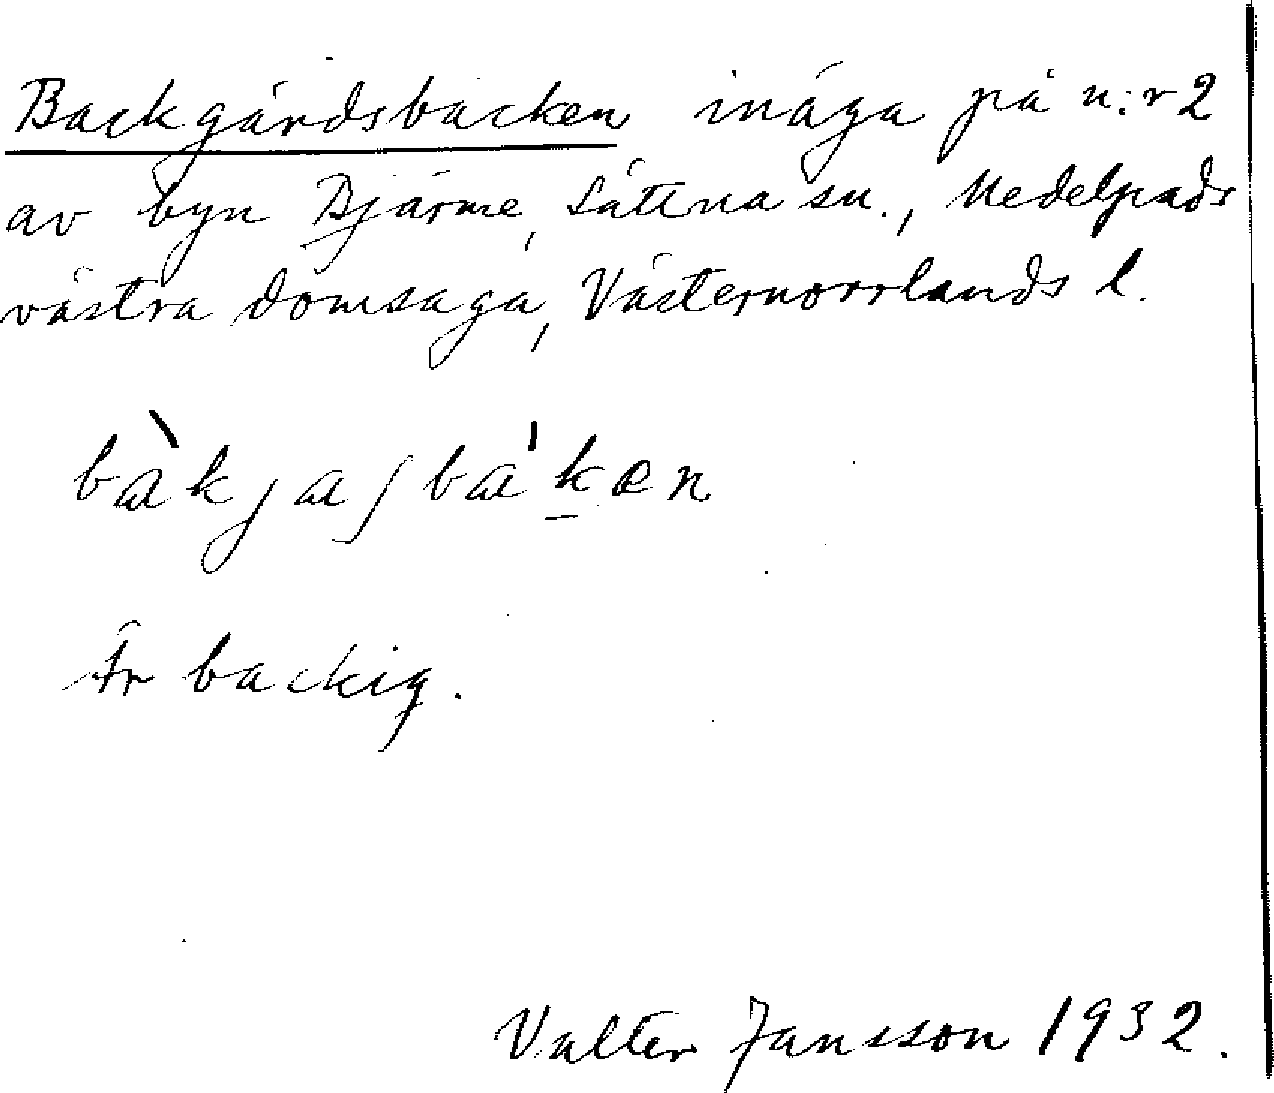 Backgårdsbacken inäga på n:r 2
av byn Bjärme, Sättna sn., Medelpads
västra domsaga, Västernorrlands l.
bàkjaʃba'ken
Är backig.
Valter Jansson 1932.